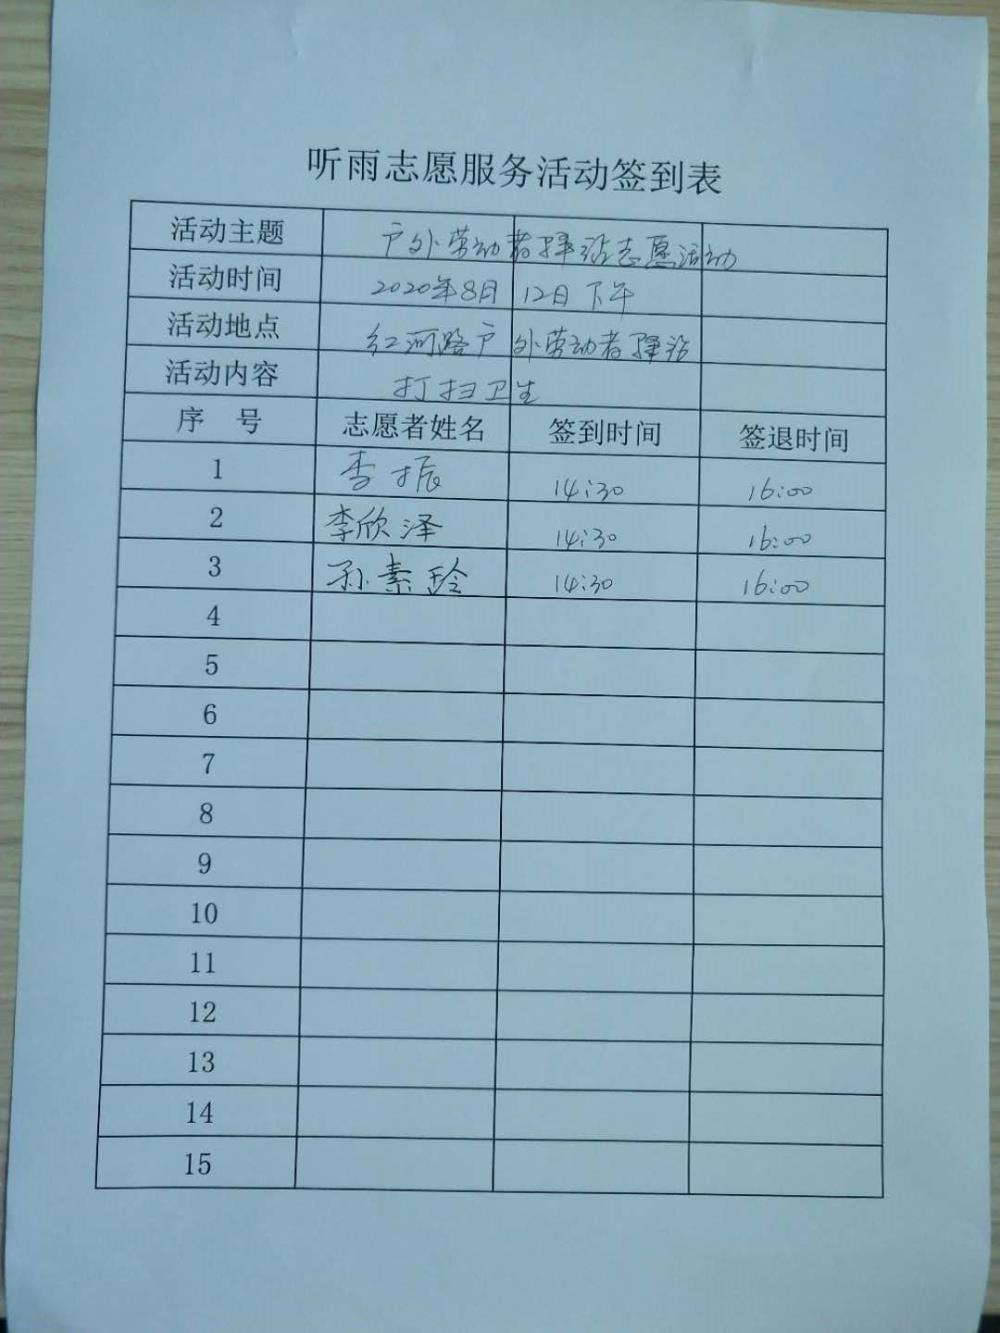 听雨志愿服务活动签到表
活动主题 户外劳动者驿站志愿活动
活动时间 2020年8月12日下午
活动地点 红河路户外劳动者驿站
活动内容 打扫卫生
序 号 志愿者姓名 签到时间 签退时间
1 李振 14:30 16:00
2 李欣泽 14:30 16:00
3 孙素玲 14:30 16:00
4
5
6
7
8
9
10
11
12
13
14
15